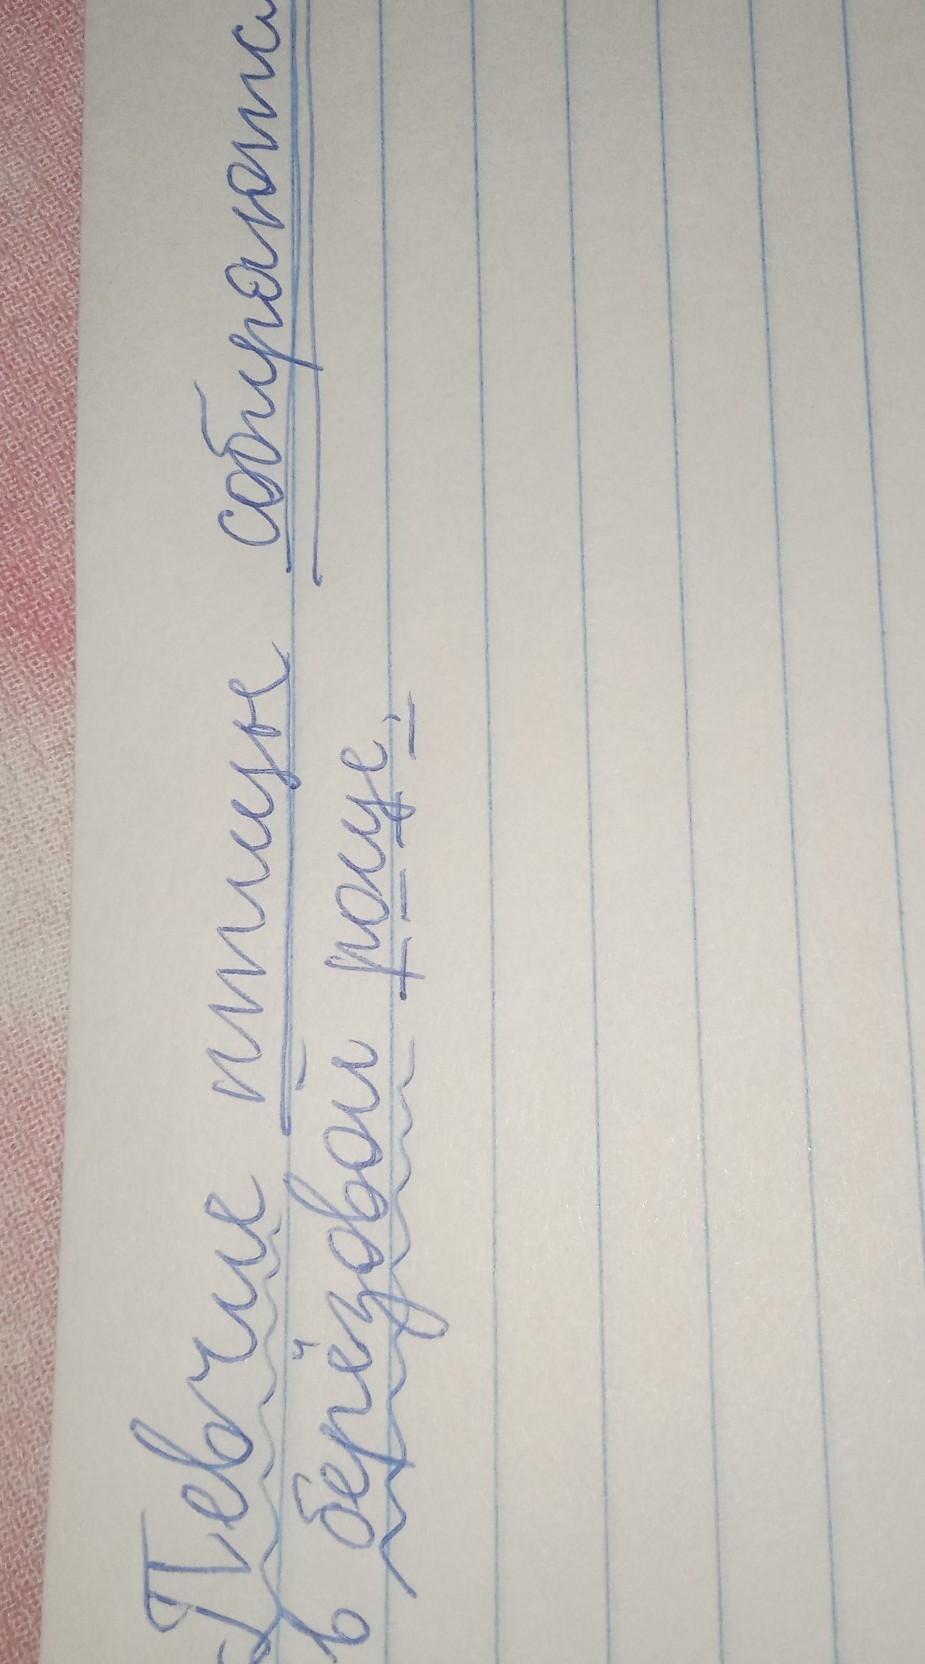 Певчие птицы собираются
в берёзовой роще.